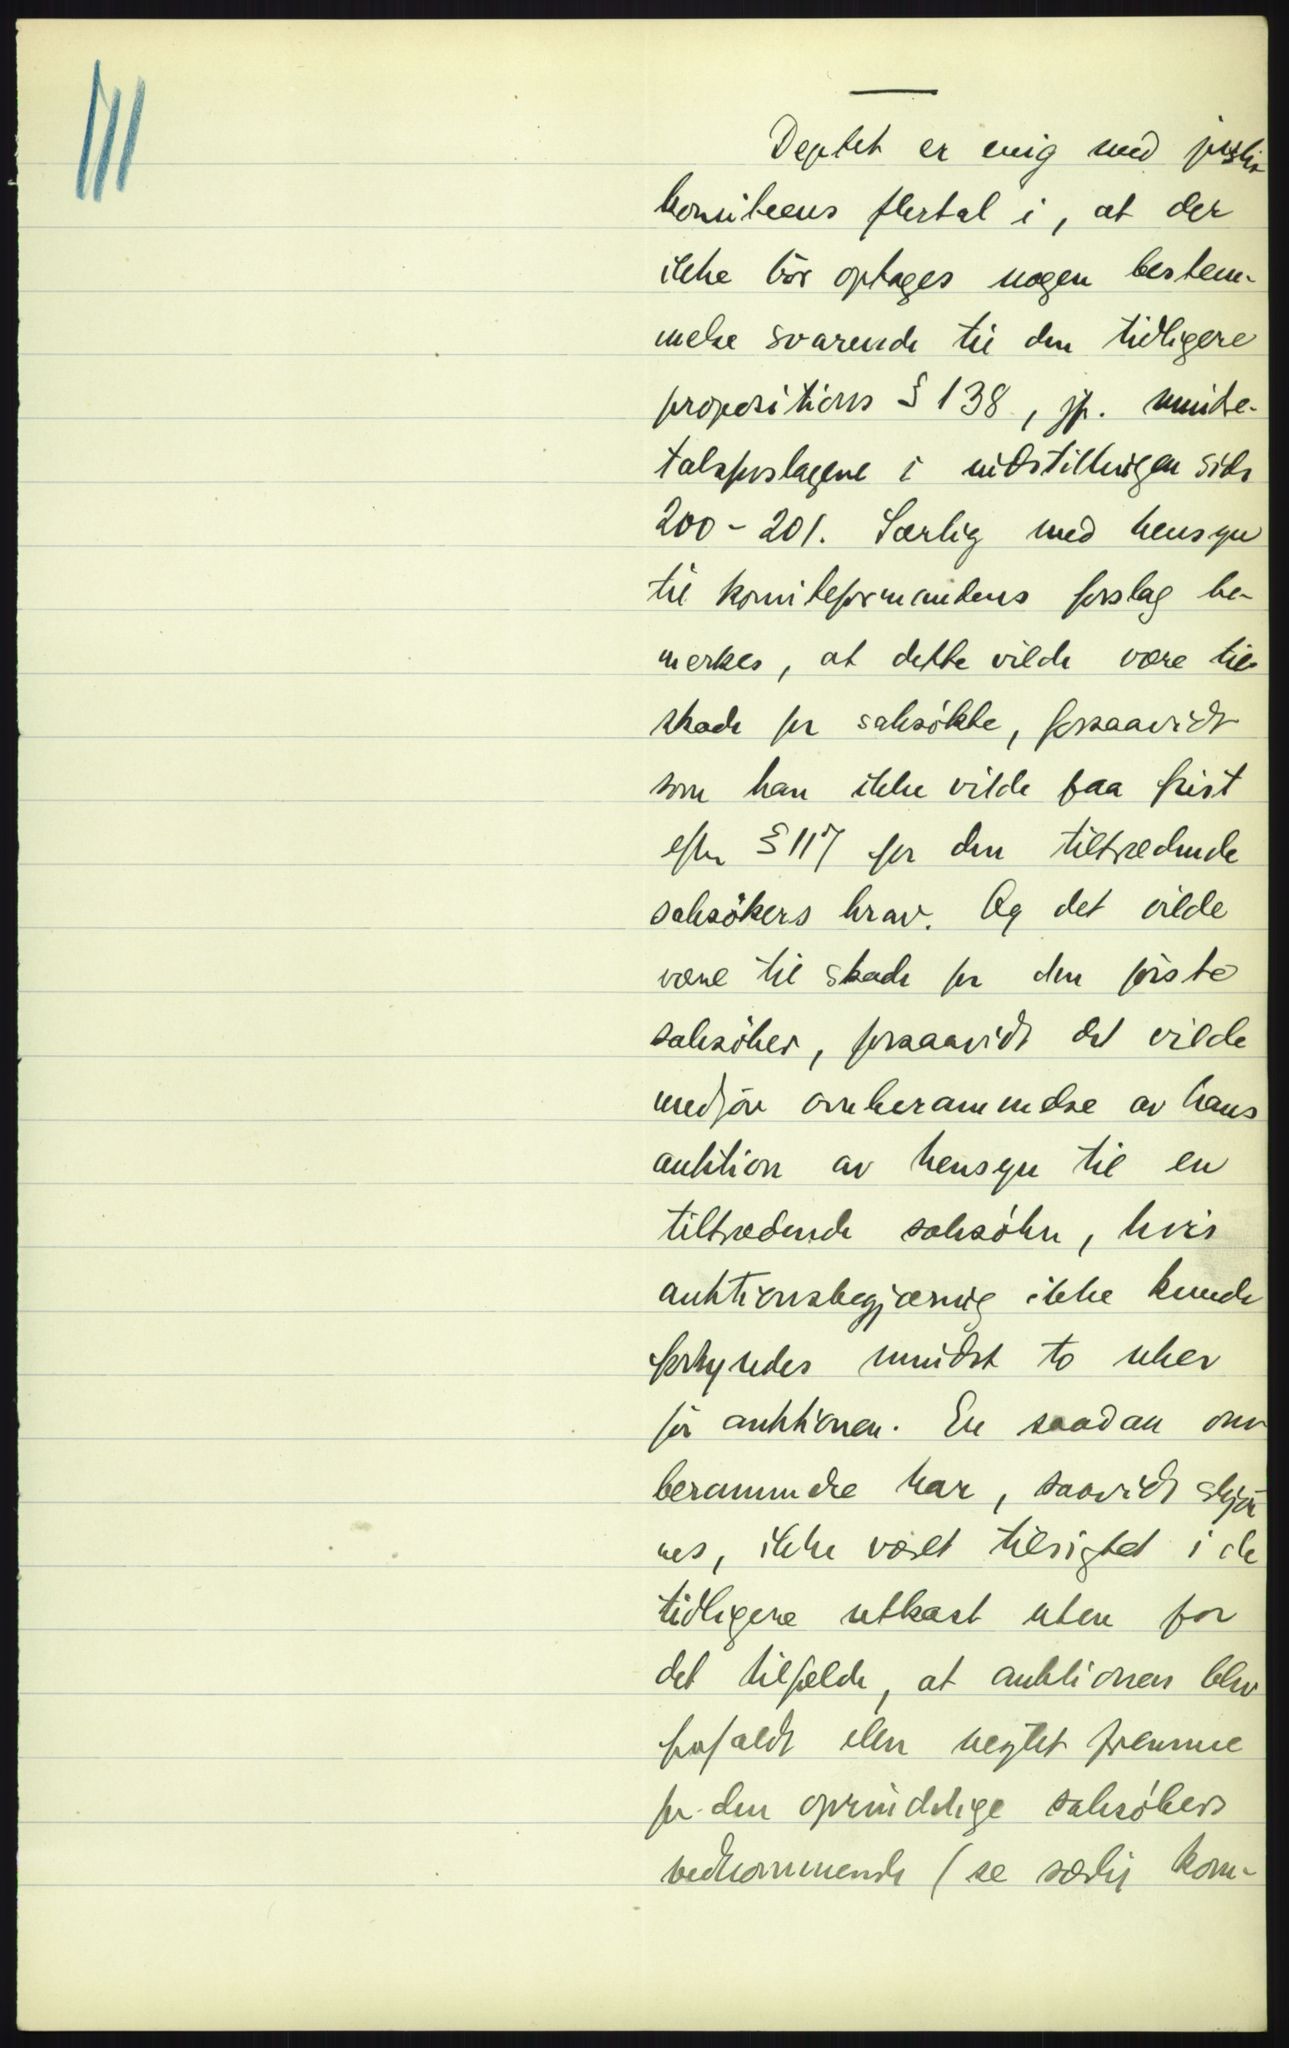 Deptet er enig med justis
komiteens flertal i, at der
ikke bör optages nogen bestem-
melse svarende til den tidligere
propositions § 138, jfr. minde-
talsforslagene i indstillingen side
200-201. Særlig med hensyn
til komiteformandens forslag be-
merkes, at dette vilde være til
skade for saksökte, forsaavidt
som han ikke vilde faa frist
efter § 117 for den tiltrædende
saksökers krav. Og det vilde
være til skade for den förste
saksöker, forsaavidt det vilde
medföre omberammelse av hans
auktion av hensyn til en
tiltrædende saksöker, hvis
auktionsbegjæring ikke kunde
forkyndes mindst to uker
för auktionen. En saadan om
berammelse har, saavidt skjön
nes, ikke været tilsigtet i de
tidligere utkast uten for
det tilfælde, at auktionen blev
frafaldt eller negtet fremme
for den oprindelige saksökers
vedkommende (se særlig kom-